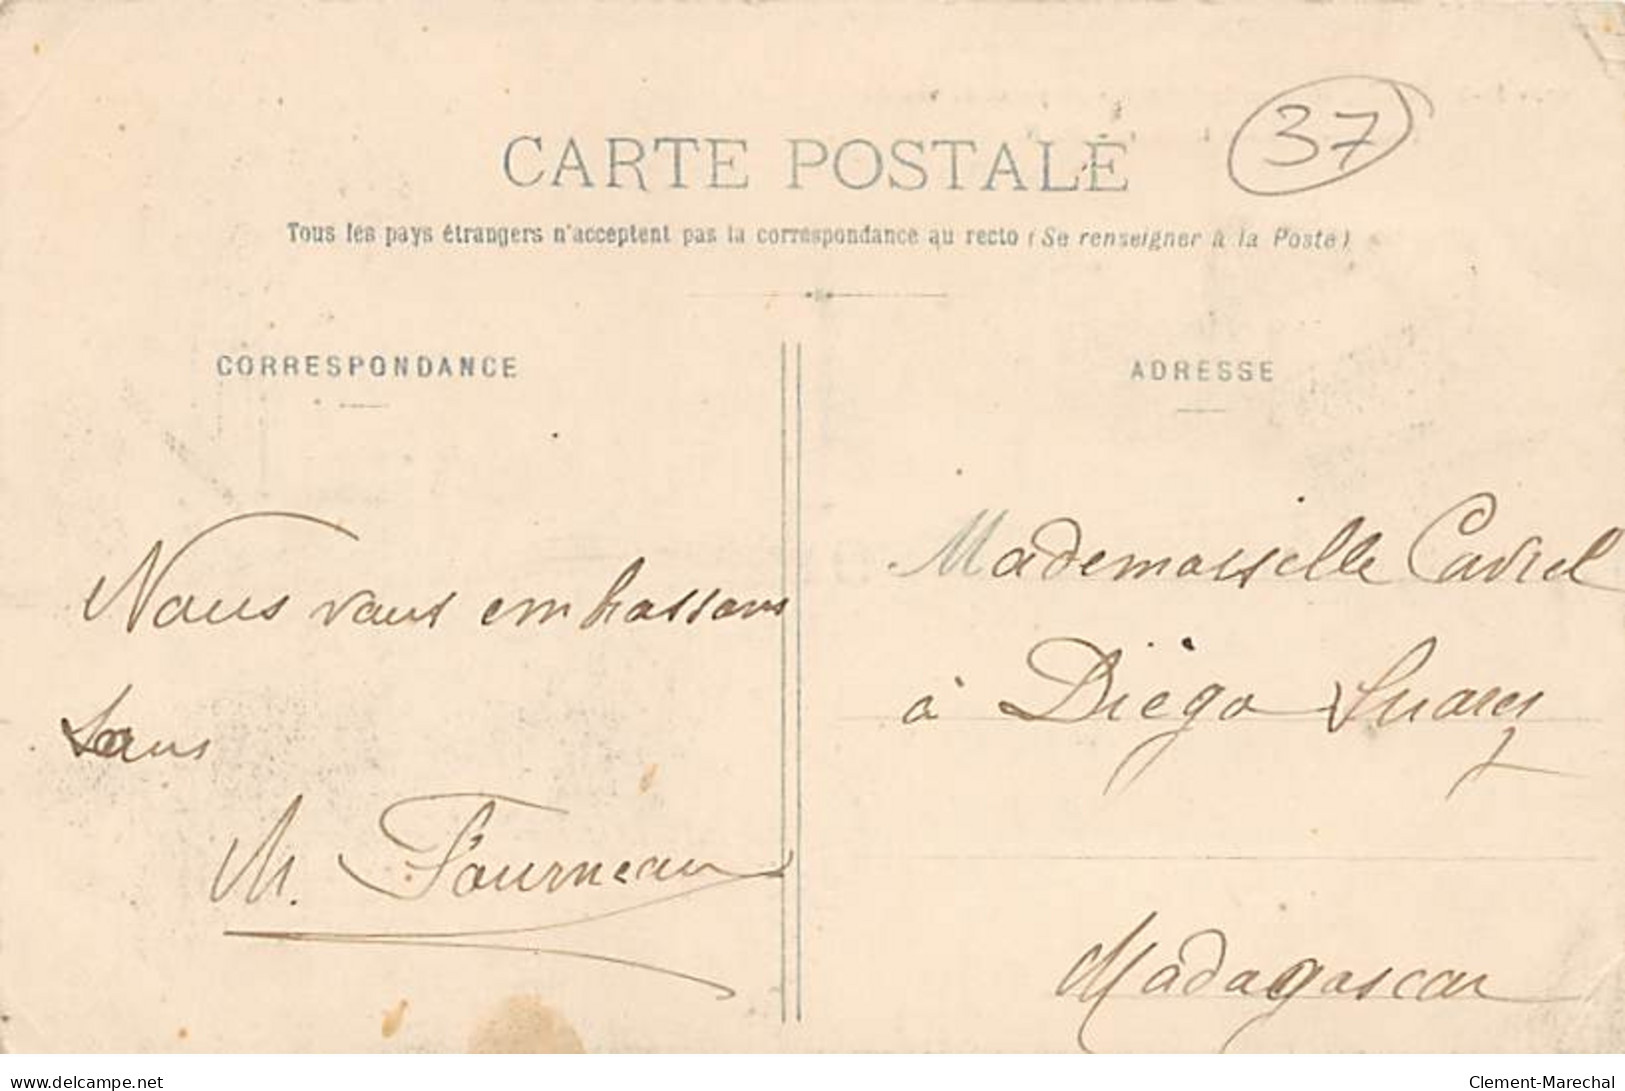 37
CARTE POSTALE
Tous les pays étrangers n'acceptent pas la correspondance au recto (Se renseigner à la Poste)
CORRESPONDANCE
Nous vous embrassons
tous
M. Fourneau
ADRESSE
Mademoiselle
à Diégo Suarez
Madagascar
www.delcampe.net
Clement-Marechal